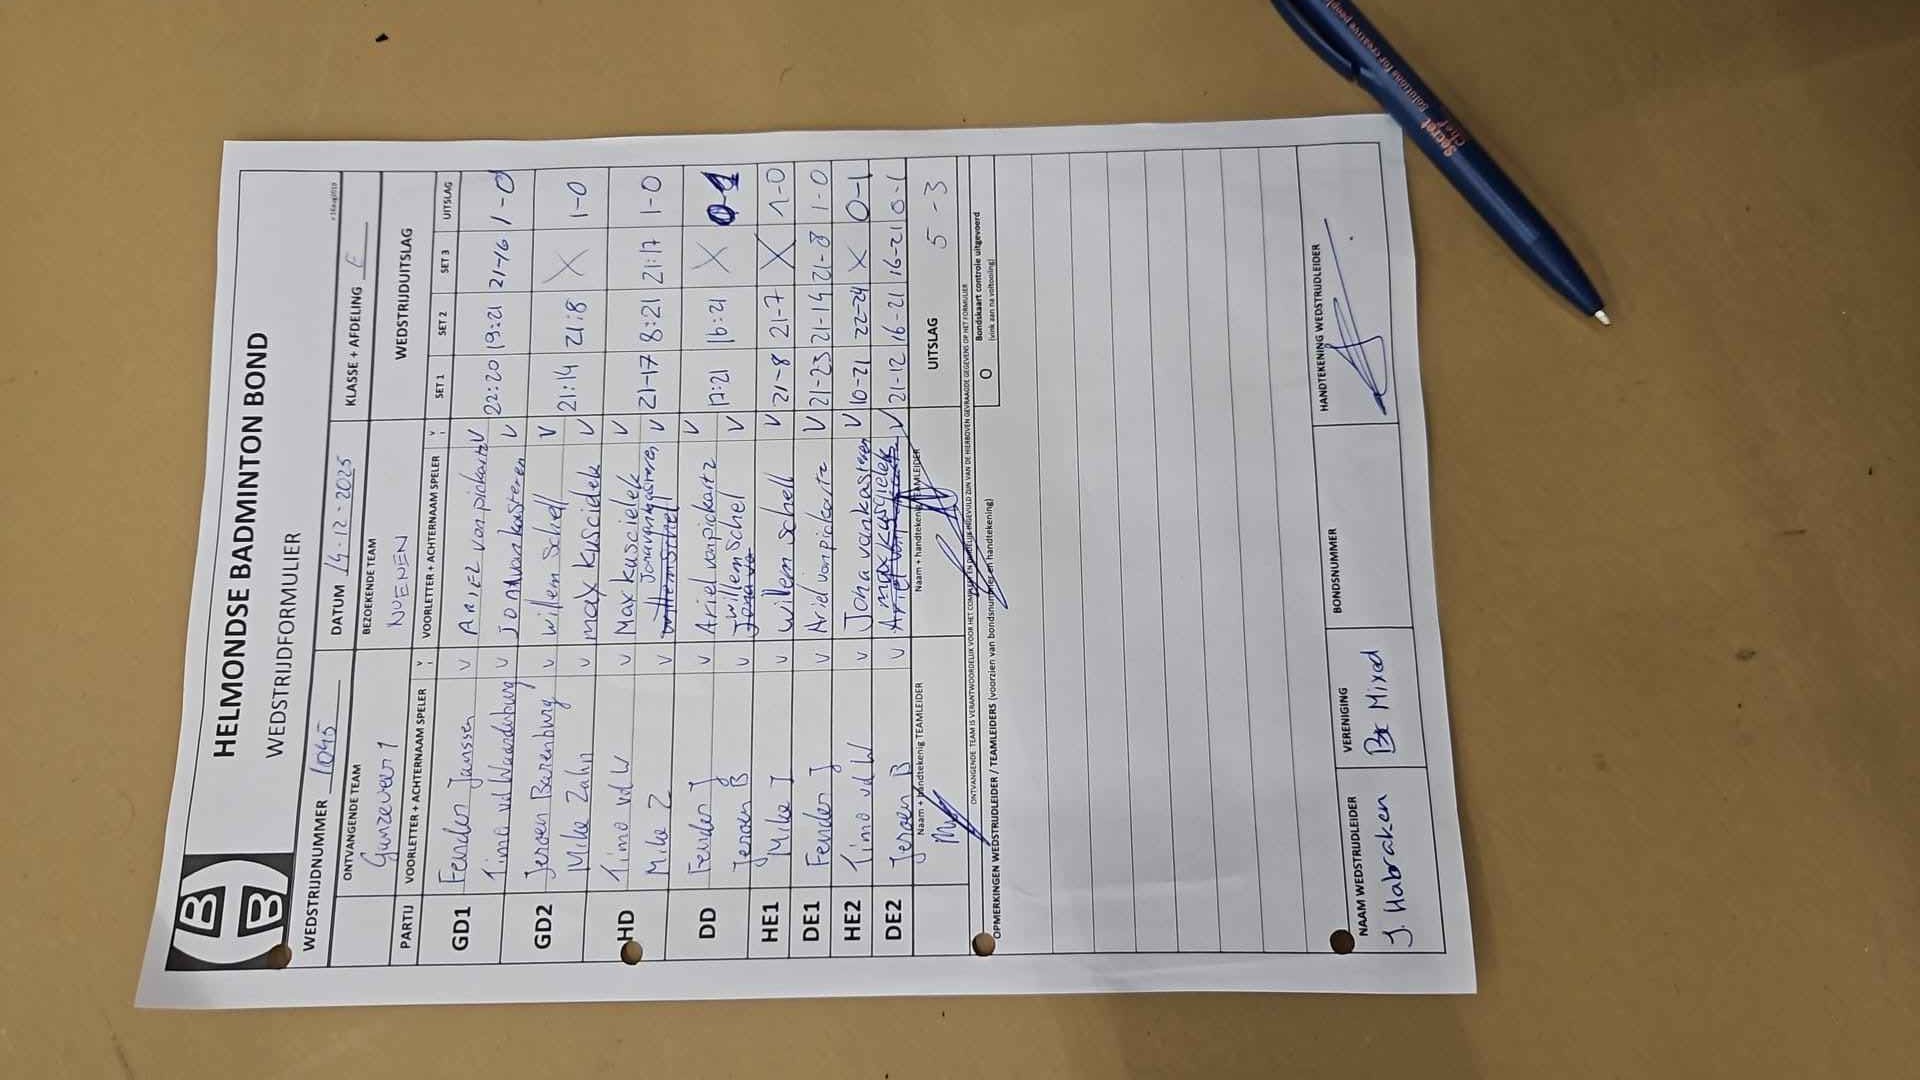 HELMONDSE BADMINTON BOND
WEDSTRIJDFORMULIER
v 16aug2019
WEDSTRIJDNUMMER 1045 DATUM 14-12-2025 KLASSE + AFDELING E
ONTVANGENDE TEAM BEZOEKENDE TEAM
Gunzeveer 1 NUENEN WEDSTRIJDUITSLAG
PARTIJ VOORLETTER + ACHTERNAAM SPELER V VOORLETTER + ACHTERNAAM SPELER V SET 1 SET 2 SET 3 UITSLAG
GD1 Fender Janssen V ARIEL van pickartz V 22:20 19:21 21-16 1-0
Timo vd Waardenburg V JONA van kasteren V
GD2 Jeroen Barenburg V Willem Schell V 21:14 21:8 X 1-0
Mike Zahn V max kuscielek V
HD Timo vd W V Max kuscielek V 21-17 8:21 21:17 1-0
Mike Z V Jona van kasteren V
DD Fender J V Ariel van pickartz V 17:21 16:21 X 0-1
Jeroen B V willem Schel V
HE1 Mike J V Willem Schell V 21-8 21-7 X 1-0
DE1 Fender J V Ariel van pickartz V 21-23 21-14 21-8 1-0
HE2 Timo vd W V Jona van kasteren V 10-21 22-24 X 0-1
DE2 Jeroen B V max kuscielek V 21-12 16-21 16-21 0-1
Naam + handtekenig TEAMLEIDER Naam + handtekenig TEAMLEIDER UITSLAG 5-3
ONTVANGENDE TEAM IS VERANTWOORDELIJK VOOR HET COMPLEET EN DUIDELIJK INGEVULD ZIJN VAN DE HIERBOVEN GEVRAAGDE GEGEVENS OP HET FORMULIER
OPMERKINGEN WEDSTRIJDLEIDER / TEAMLEIDERS (voorzien van bondsnummer en handtekening)
O Bondskaart controle uitgevoerd
(vink aan na voltooiing)
NAAM WEDSTRIJDLEIDER VERENIGING BONDSNUMMER HANDTEKENING WEDSTRIJDLEIDER
J. Habraken BC Mixed
Secret
Chef
solutions for creative people